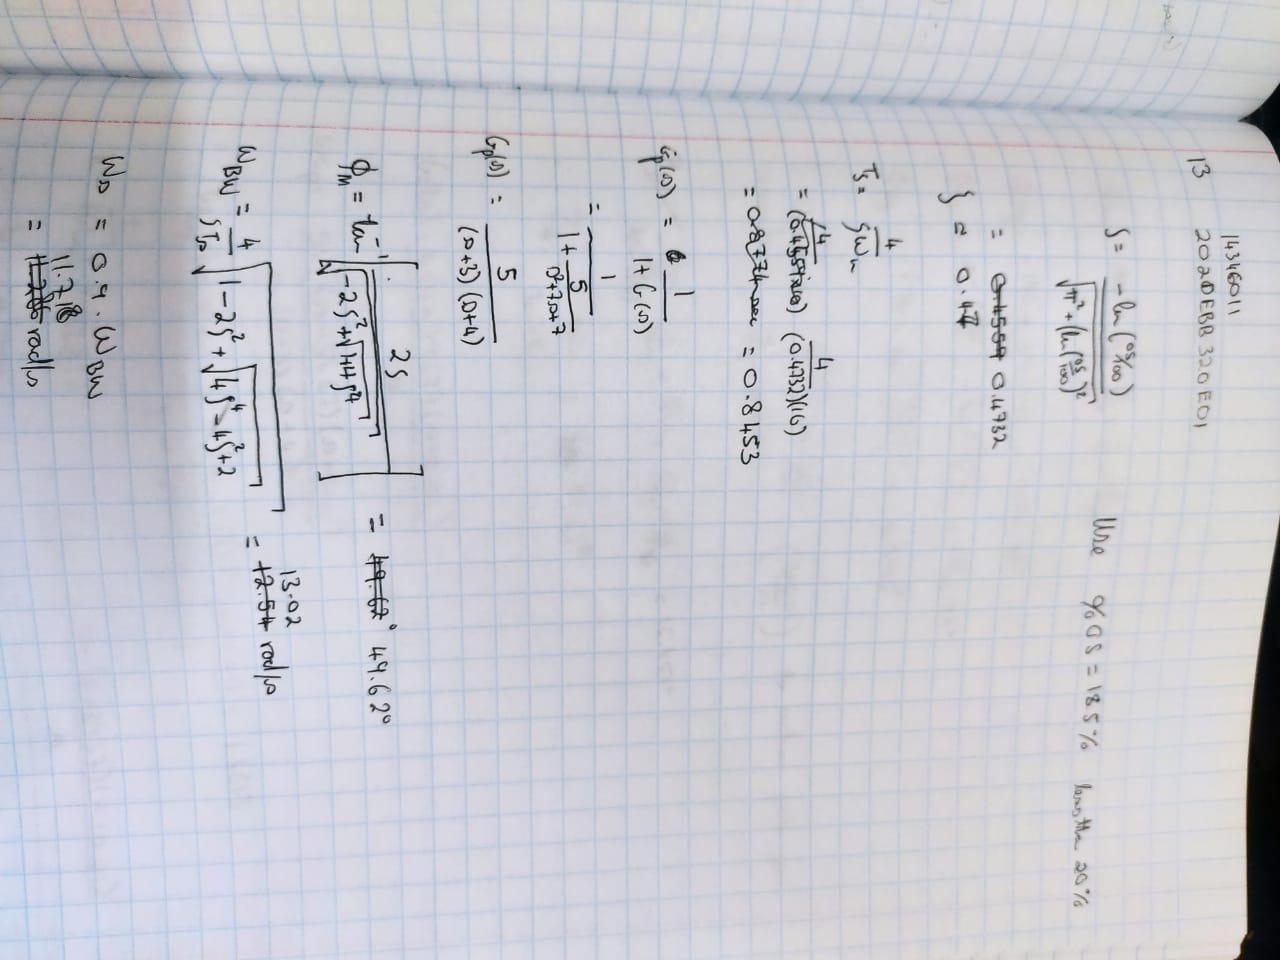 14346011
13 2020EBB320E01
ζ = -ln(OS/100) / √(π² + (ln(OS/100))²)
Use %OS = 18.5% less than 20%
= 0.4559 0.4732
ζ ≈ 0.47
Ts = 4/(ζωn)
= 4/(0.4559×10) 4/(0.4732)(10)
= 0.8774 sec = 0.8453
Gp(s) = 1/(1+G(s))
= 1/(1 + 5/(s²+7s+7))
Gp(s) = 5/((s+3)(s+4))
ΦM = tan⁻¹[2ζ/√(-2ζ²+√(1+4ζ⁴))] = 49.62° 49.62°
ωBW = 4/(ζTs) √(1-2ζ²+√(4ζ⁴-4ζ²+2)) = 12.54 13.02 rad/s
ωs = 0.9 . ωBW
11.718
= 11.286 rad/s